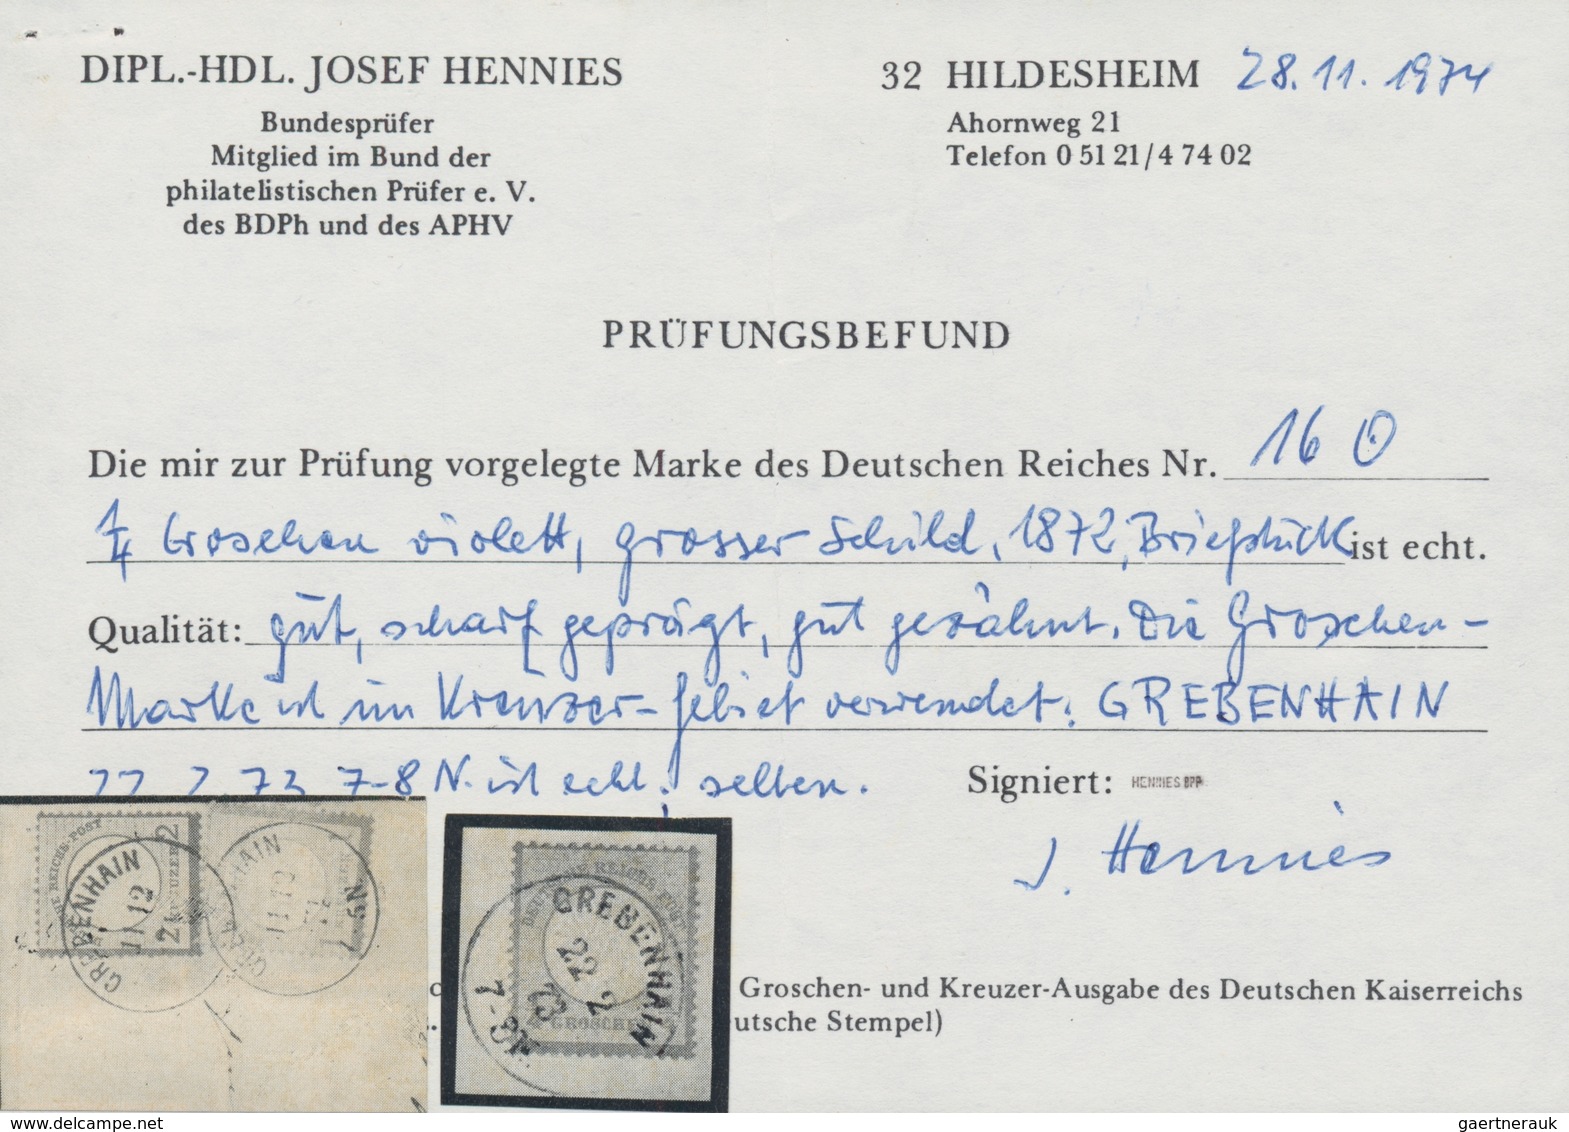 DIPL.-HDL. JOSEF HENNIES
Bundesprüfer
Mitglied im Bund der
philatelistischen Prüfer e. V.
des BDPh und des APHV
32 HILDESHEIM 28.11.1974
Ahornweg 21
Telefon 0 51 21/4 74 02
PRÜFUNGSBEFUND
Die mir zur Prüfung vorgelegte Marke des Deutschen Reiches Nr. 16 ʘ
1/4 Groschen violett, grosser Schild, 1872, Briefstück ist echt.
Qualität: gut, scharf geprägt, gut gezähnt. Die Groschen-
Marke ist im Kreuzer-Gebiet verwendet. GREBENHAIN
73 7-8 N. ist echt. selten.
Signiert: HENNIES BPP
J. Hennies
Groschen- und Kreuzer-Ausgabe des Deutschen Kaiserreichs
utsche Stempel)
HE REICHS-POST
KREUZER 2
GREBENHAIN
11 12
7-8 N
GREBENHAIN
22 2
73
7-8 N
GROSCHE
www.delcampe.net
gaertnerauk